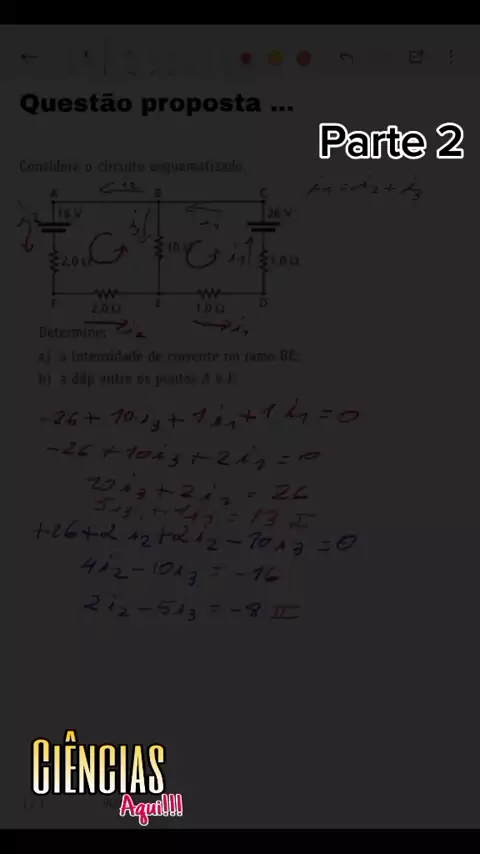 Questão proposta ...
Parte 2
Considere o circuito esquematizado.
i₁ = i₂ + i₃
A
B
C
i₂
16 V
26 V
i₃
i₁
2,0 Ω
10
i₁
1,0 Ω
F
E
D
2,0 Ω
1,0 Ω
i₂
i₁
Determine:
a) a intensidade de corrente no ramo BE;
b) a ddp entre os pontos A e
-26 + 10i₃ + 1i₁ + 1i₁ = 0
-26 + 10i₃ + 2i₁ = 0
10i₃ + 2i₁ = 26
5i₃ + 1i₁ = 13 I
+2i₂ + 2i₂ - 10i₃ = 0
4i₂ - 10i₃ = -16
2i₂ - 5i₃ = -8 II
CIÊNCIAS
Aqui!!!